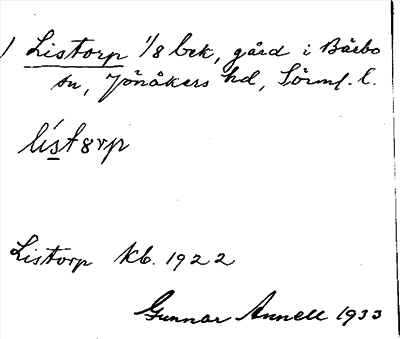 ) Listorp 1/8 bek, gård i Bärbo
sn, Jönåkers hd, Sörml. l.
lístȣrp
Listorp Kb. 1922
Gunnar Annell 1933